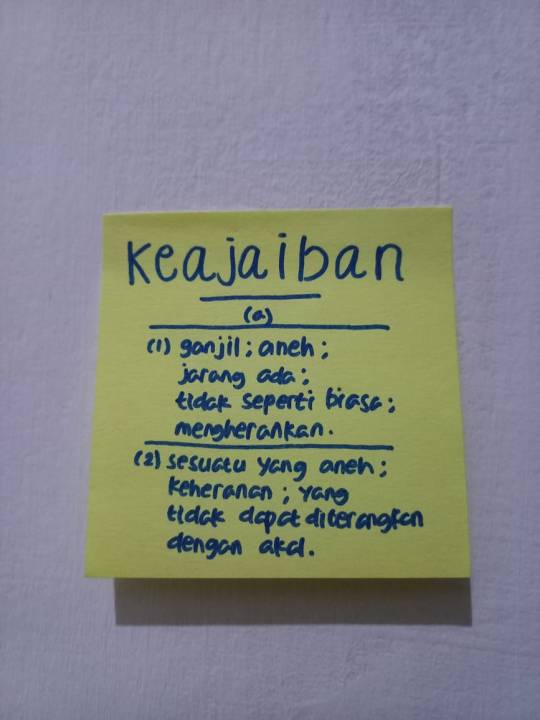 Keajaiban
(a)
(1) ganjil; aneh;
jarang ada;
tidak seperti biasa;
mengherankan.
(2) sesuatu yang aneh;
keheranan; yang
tidak dapat diterangkan
dengan akal.